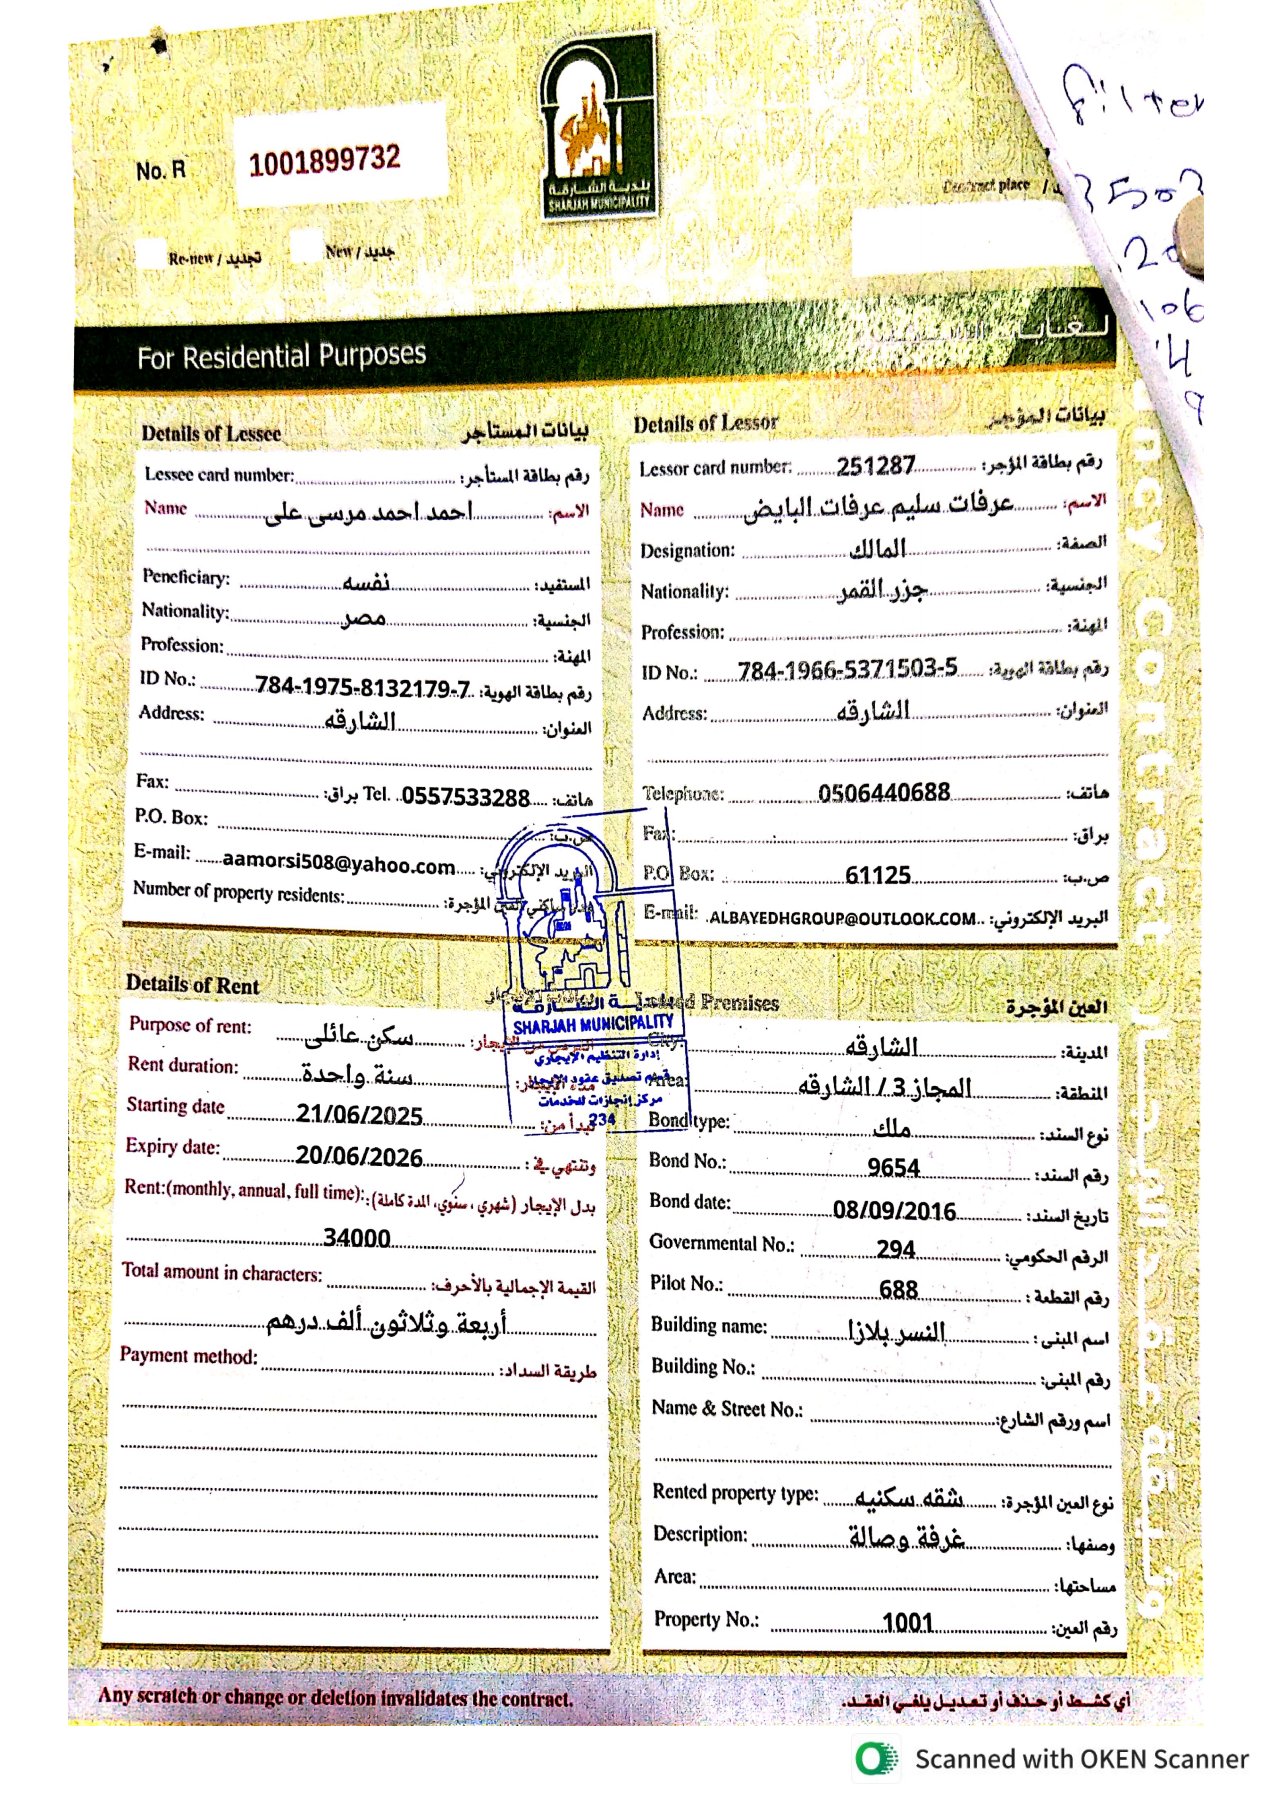 filter
3503
.20
106
14
9
No. R 1001899732
بلدية الشارقة
SHARJAH MUNICIPALITY
Contract place /
Re-new / تجديد
New / جديد
For Residential Purposes
Details of Lessee بيانات المستأجر
Lessee card number: رقم بطاقة المستأجر:
Name احمد احمد مرسى على الاسم:
Peneficiary: نفسه المستفيد:
Nationality: مصر الجنسية:
Profession: المهنة:
ID No.: 784-1975-8132179-7 رقم بطاقة الهوية:
Address: الشارقه العنوان:
Fax: براق: Tel. 0557533288 هاتف:
P.O. Box: ص.ب:
E-mail: aamorsi508@yahoo.com البريد الإلكتروني:
Number of property residents: المؤجرة:
Details of Lessor بيانات المؤجر
Lessor card number: 251287 رقم بطاقة المؤجر:
Name عرفات سليم عرفات البايض الاسم:
Designation: المالك الصفة:
Nationality: جزر القمر الجنسية:
Profession: المهنة:
ID No.: 784-1966-5371503-5 رقم بطاقة الهوية:
Address: الشارقه العنوان:
Telephone: 0506440688 هاتف:
Fax: براق:
P.O. Box: 61125 ص.ب:
E-mail: ALBAYEDHGROUP@OUTLOOK.COM البريد الإلكتروني:
بلدية الشارقة
SHARJAH MUNICIPALITY
إدارة التنظيم الإيجاري
قسم تصديق عقود الإيجار
مركز إنجازات للخدمات
234
Details of Rent بيانات الإيجار
Purpose of rent: سكن عائلى الغرض من الإيجار:
Rent duration: سنة واحدة مدة الإيجار:
Starting date 21/06/2025 تبدأ من:
Expiry date: 20/06/2026 وتنتهي في:
Rent:(monthly, annual, full time): بدل الإيجار (شهري ، سنوي، المدة كاملة):
34000
Total amount in characters: القيمة الإجمالية بالأحرف:
أربعة وثلاثون ألف درهم
Payment method: طريقة السداد:
Leased Premises العين المؤجرة
City: الشارقه المدينة:
Area: المجاز 3 / الشارقه المنطقة:
Bond type: ملك نوع السند:
Bond No.: 9654 رقم السند:
Bond date: 08/09/2016 تاريخ السند:
Governmental No.: 294 الرقم الحكومي:
Pilot No.: 688 رقم القطعة:
Building name: النسر بلازا اسم المبنى:
Building No.: رقم المبنى:
Name & Street No.: اسم ورقم الشارع:
Rented property type: شقه سكنيه نوع العين المؤجرة:
Description: غرفة وصالة وصفها:
Area: مساحتها:
Property No.: 1001 رقم العين:
ncy Contract
Any scratch or change or deletion invalidates the contract. أي كشط أو حذف أو تعديل يلغي العقد.
Scanned with OKEN Scanner